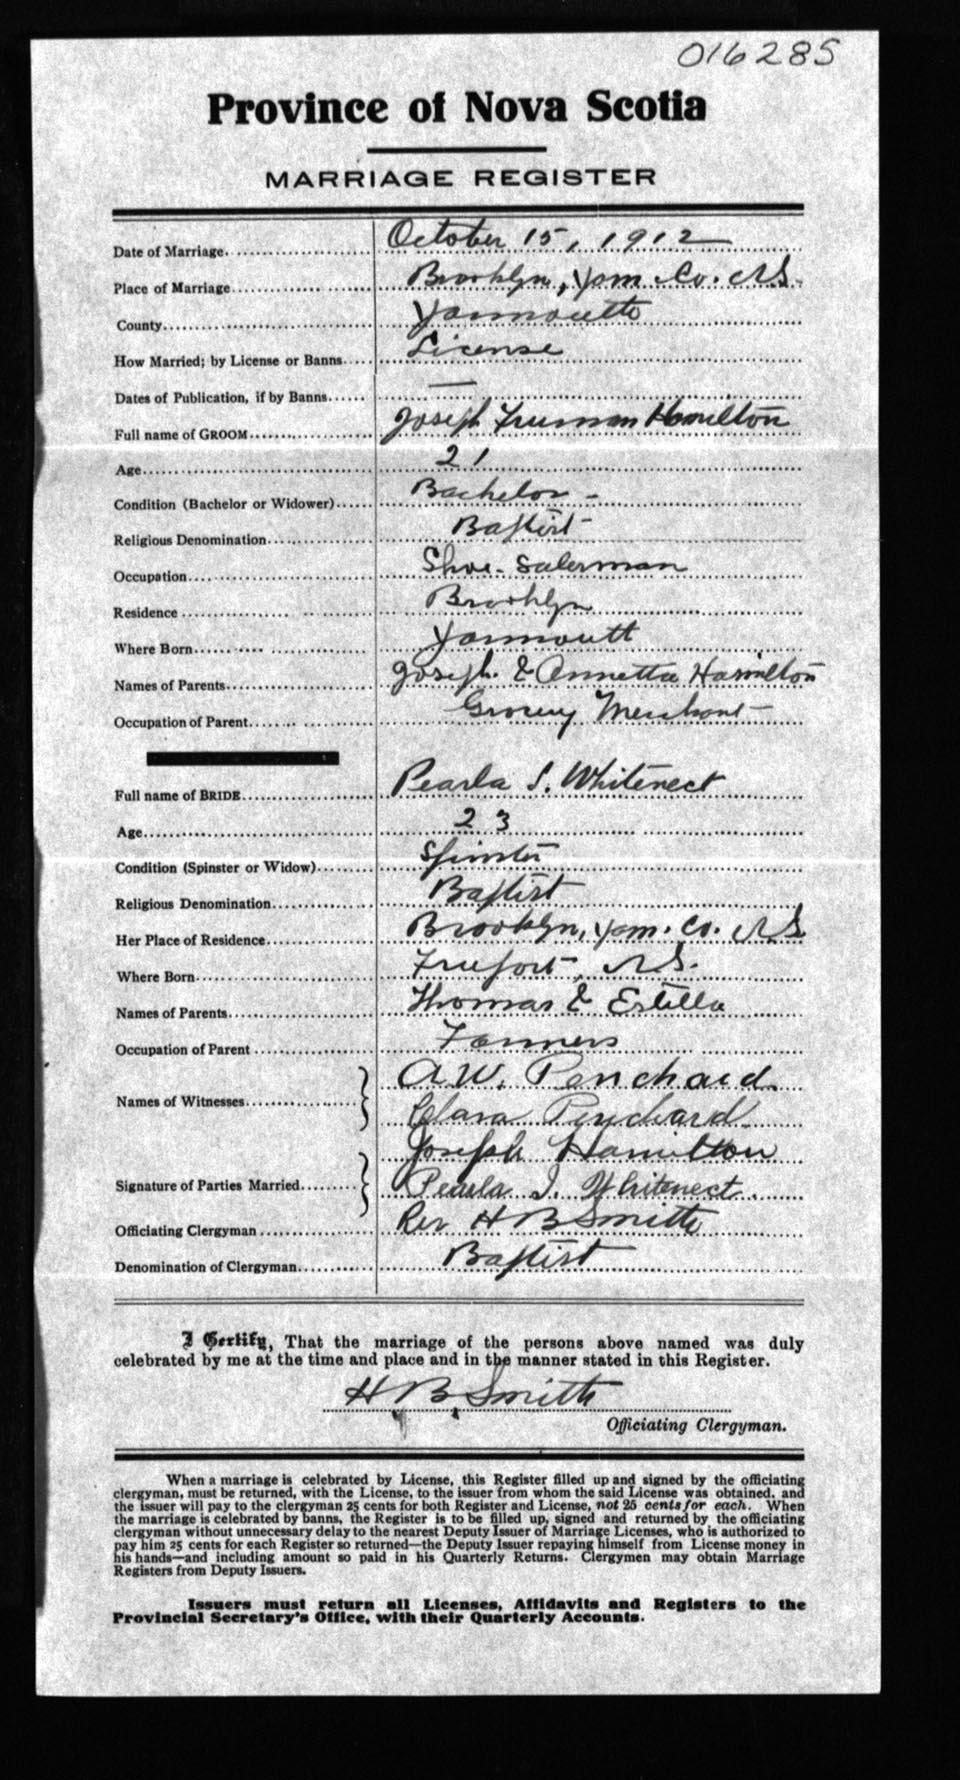 016285
Province of Nova Scotia
MARRIAGE REGISTER
Date of Marriage. October 15, 1912
Place of Marriage Brooklyn, Yarm. Co. N.S.
County Yarmouth
How Married; by License or Banns License
Dates of Publication, if by Banns —
Full name of GROOM Joseph Truman Hamilton
Age 21
Condition (Bachelor or Widower) Bachelor -
Religious Denomination Baptist -
Occupation Shoe-Salesman
Residence Brooklyn
Where Born Yarmouth
Names of Parents Joseph & Annetta Hamilton
Occupation of Parent Grocery Merchant -
Full name of BRIDE Pearla I. Whitenect
Age 23
Condition (Spinster or Widow) Spinster
Religious Denomination Baptist
Her Place of Residence Brooklyn, Yarm. Co. N.S.
Where Born N.S.
Names of Parents Thomas & Estella
Occupation of Parent Farmers
A.W. Penchard.
Names of Witnesses
Clara Penchard.
Joseph Hamilton
Signature of Parties Married Pearla I. Whitenect.
Officiating Clergyman Rev H B Smith
Denomination of Clergyman Baptist
I Certify, That the marriage of the persons above named was duly
celebrated by me at the time and place and in the manner stated in this Register.
H B Smith
Officiating Clergyman.
When a marriage is celebrated by License, this Register filled up and signed by the officiating
clergyman, must be returned, with the License, to the issuer from whom the said License was obtained, and
the issuer will pay to the clergyman 25 cents for both Register and License, not 25 cents for each. When
the marriage is celebrated by banns, the Register is to be filled up, signed and returned by the officiating
clergyman without unnecessary delay to the nearest Deputy Issuer of Marriage Licenses, who is authorized to
pay him 25 cents for each Register so returned—the Deputy Issuer repaying himself from License money in
his hands—and including amount so paid in his Quarterly Returns. Clergymen may obtain Marriage
Registers from Deputy Issuers.
Issuers must return all Licenses, Affidavits and Registers to the
Provincial Secretary's Office, with their Quarterly Accounts.